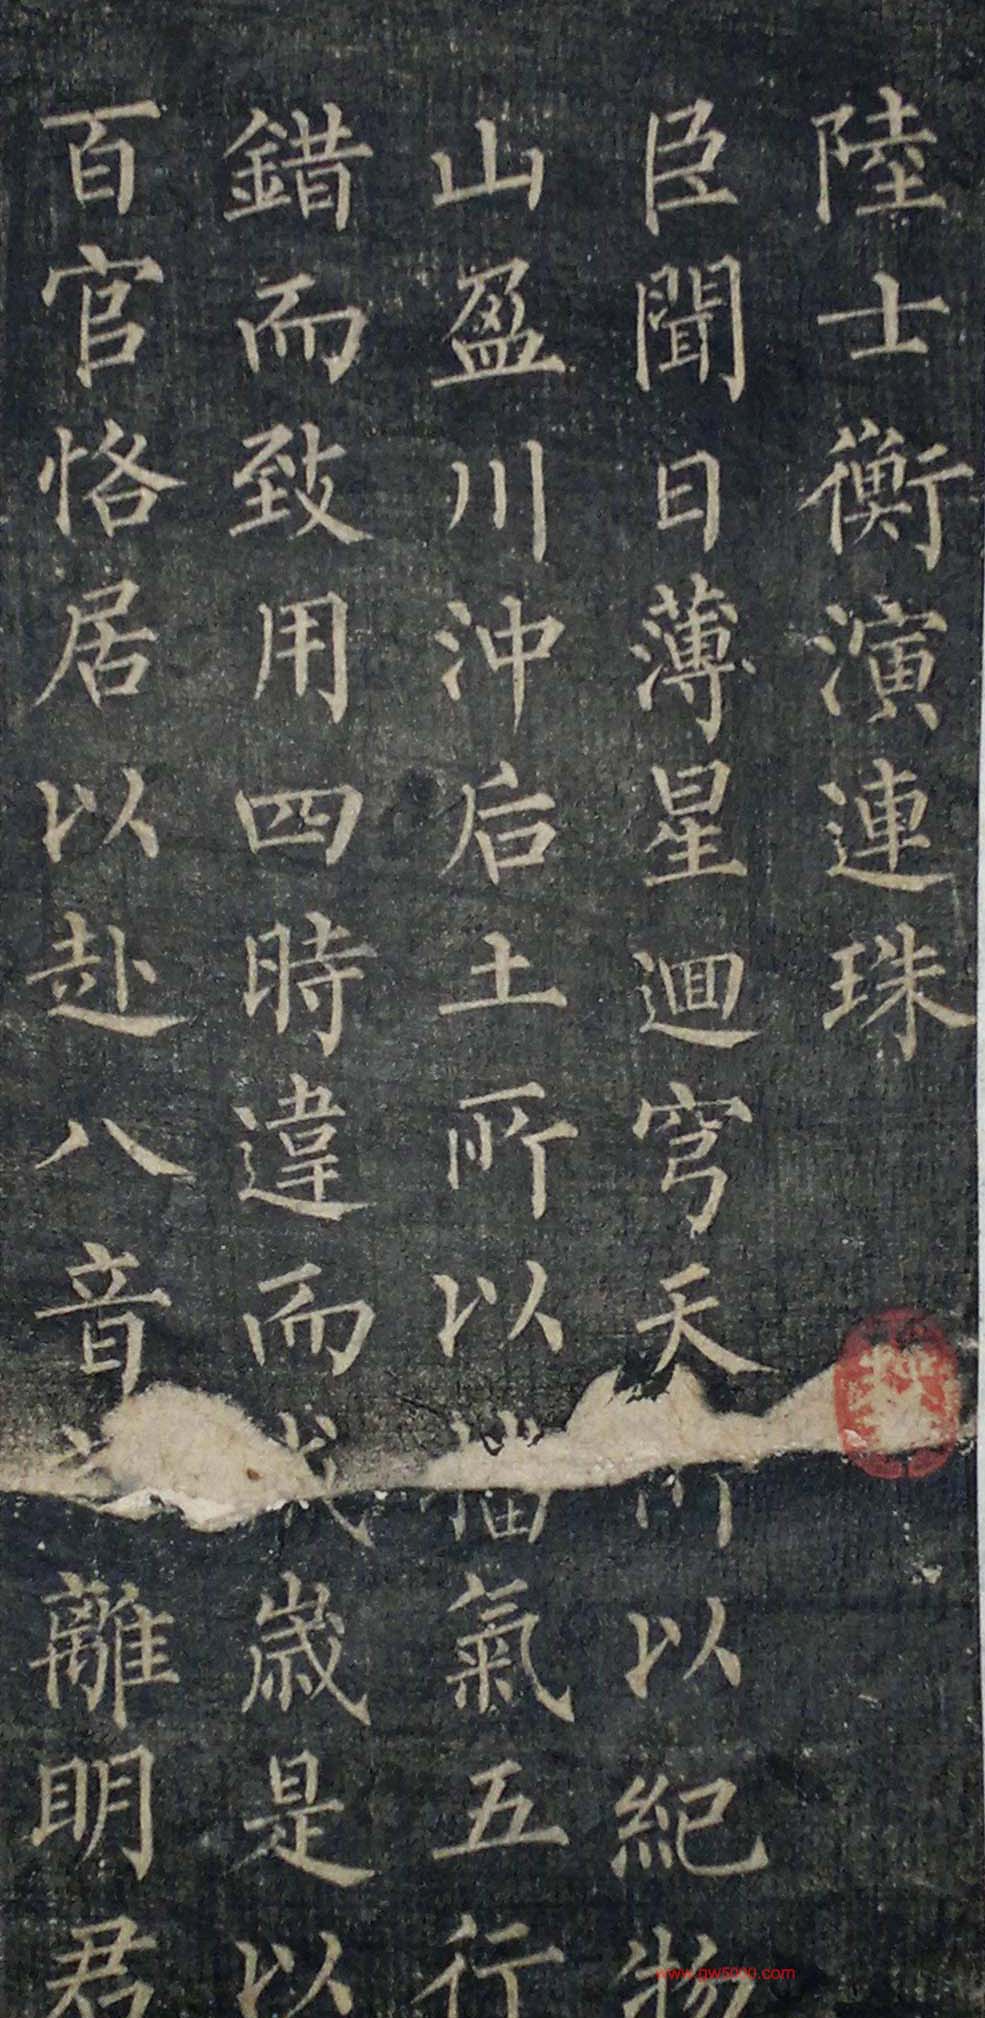 陸士衡演連珠
臣聞日薄星迴穹天所以紀物
山盈川沖后土所以播氣五行
錯而致用四時違而成歲是以
百官恪居以赴八音之離明君
www.gw5000.com